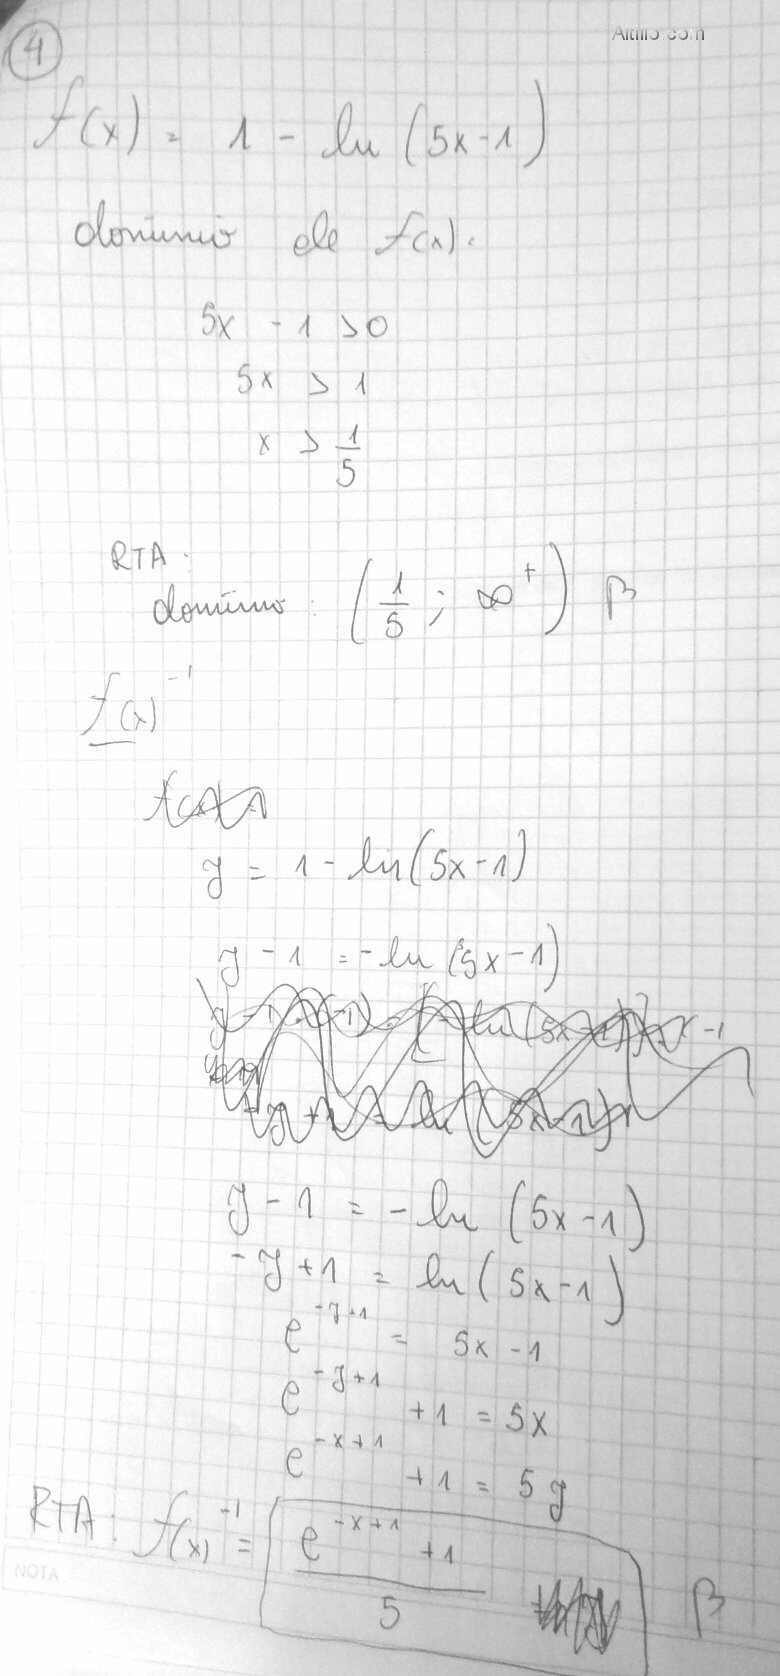 Altillo.com
4
f(x) = 1 - ln (5x-1)
dominio de f(x):
5x - 1 > 0
5x > 1
x > 1/5
RTA:
dominio: (1/5 ; ∞⁺) β
f(x)⁻¹
y = 1 - ln(5x-1)
y - 1 = -ln (5x-1)
y - 1 = -ln (5x-1)
-y + 1 = ln (5x-1)
e^(-y+1) = 5x - 1
e^(-y+1) + 1 = 5x
e^(-x+1) + 1 = 5y
RTA: f(x)⁻¹ = (e^(-x+1) + 1)/5 β
NOTA